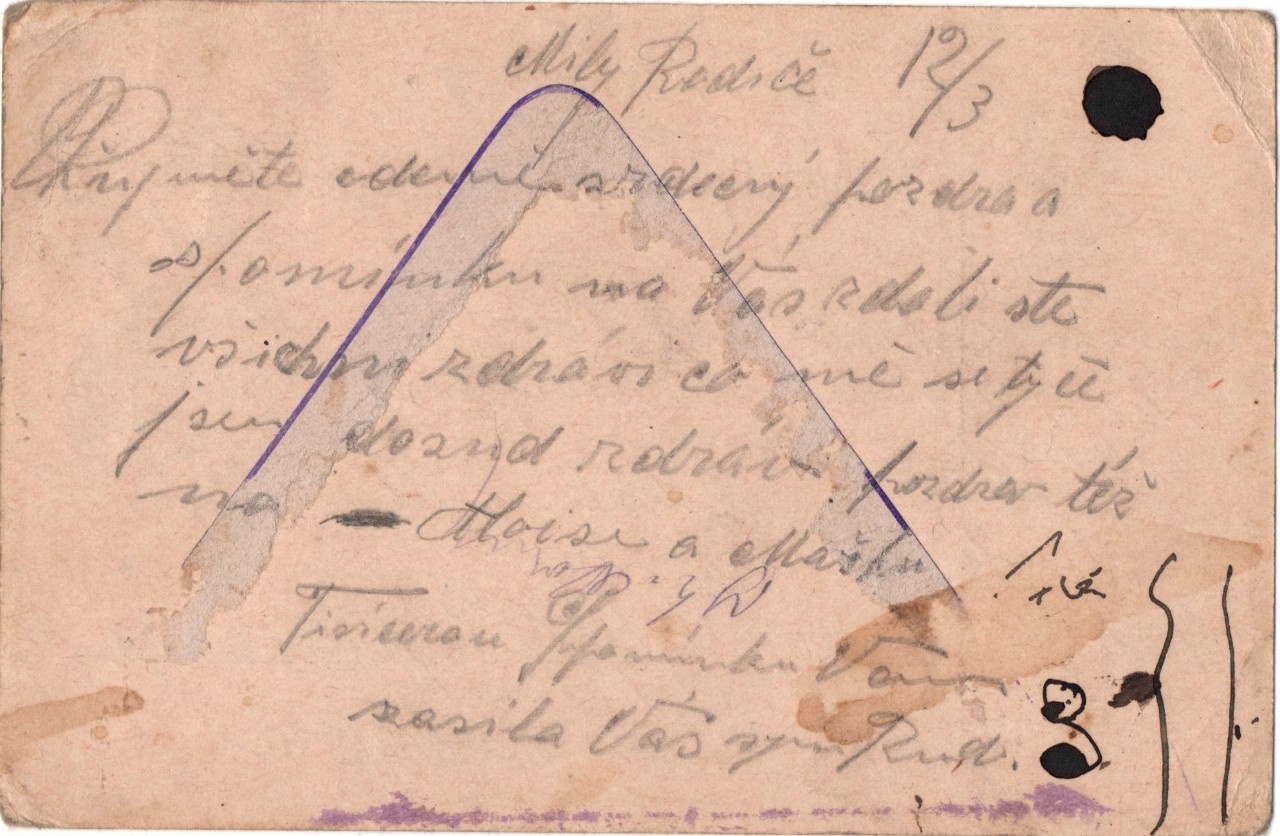 Mily Rodiče 12/3
Přijměte odemě srdečný pozdra a
spomínku na Vás zdali ste
všichni zdrávi co mě se tyče
jsem dosud zdráv pozdrav též
na Aloise a Mašku
Tisícerou Spomínku Vám
zasíla Váš syn Rud.